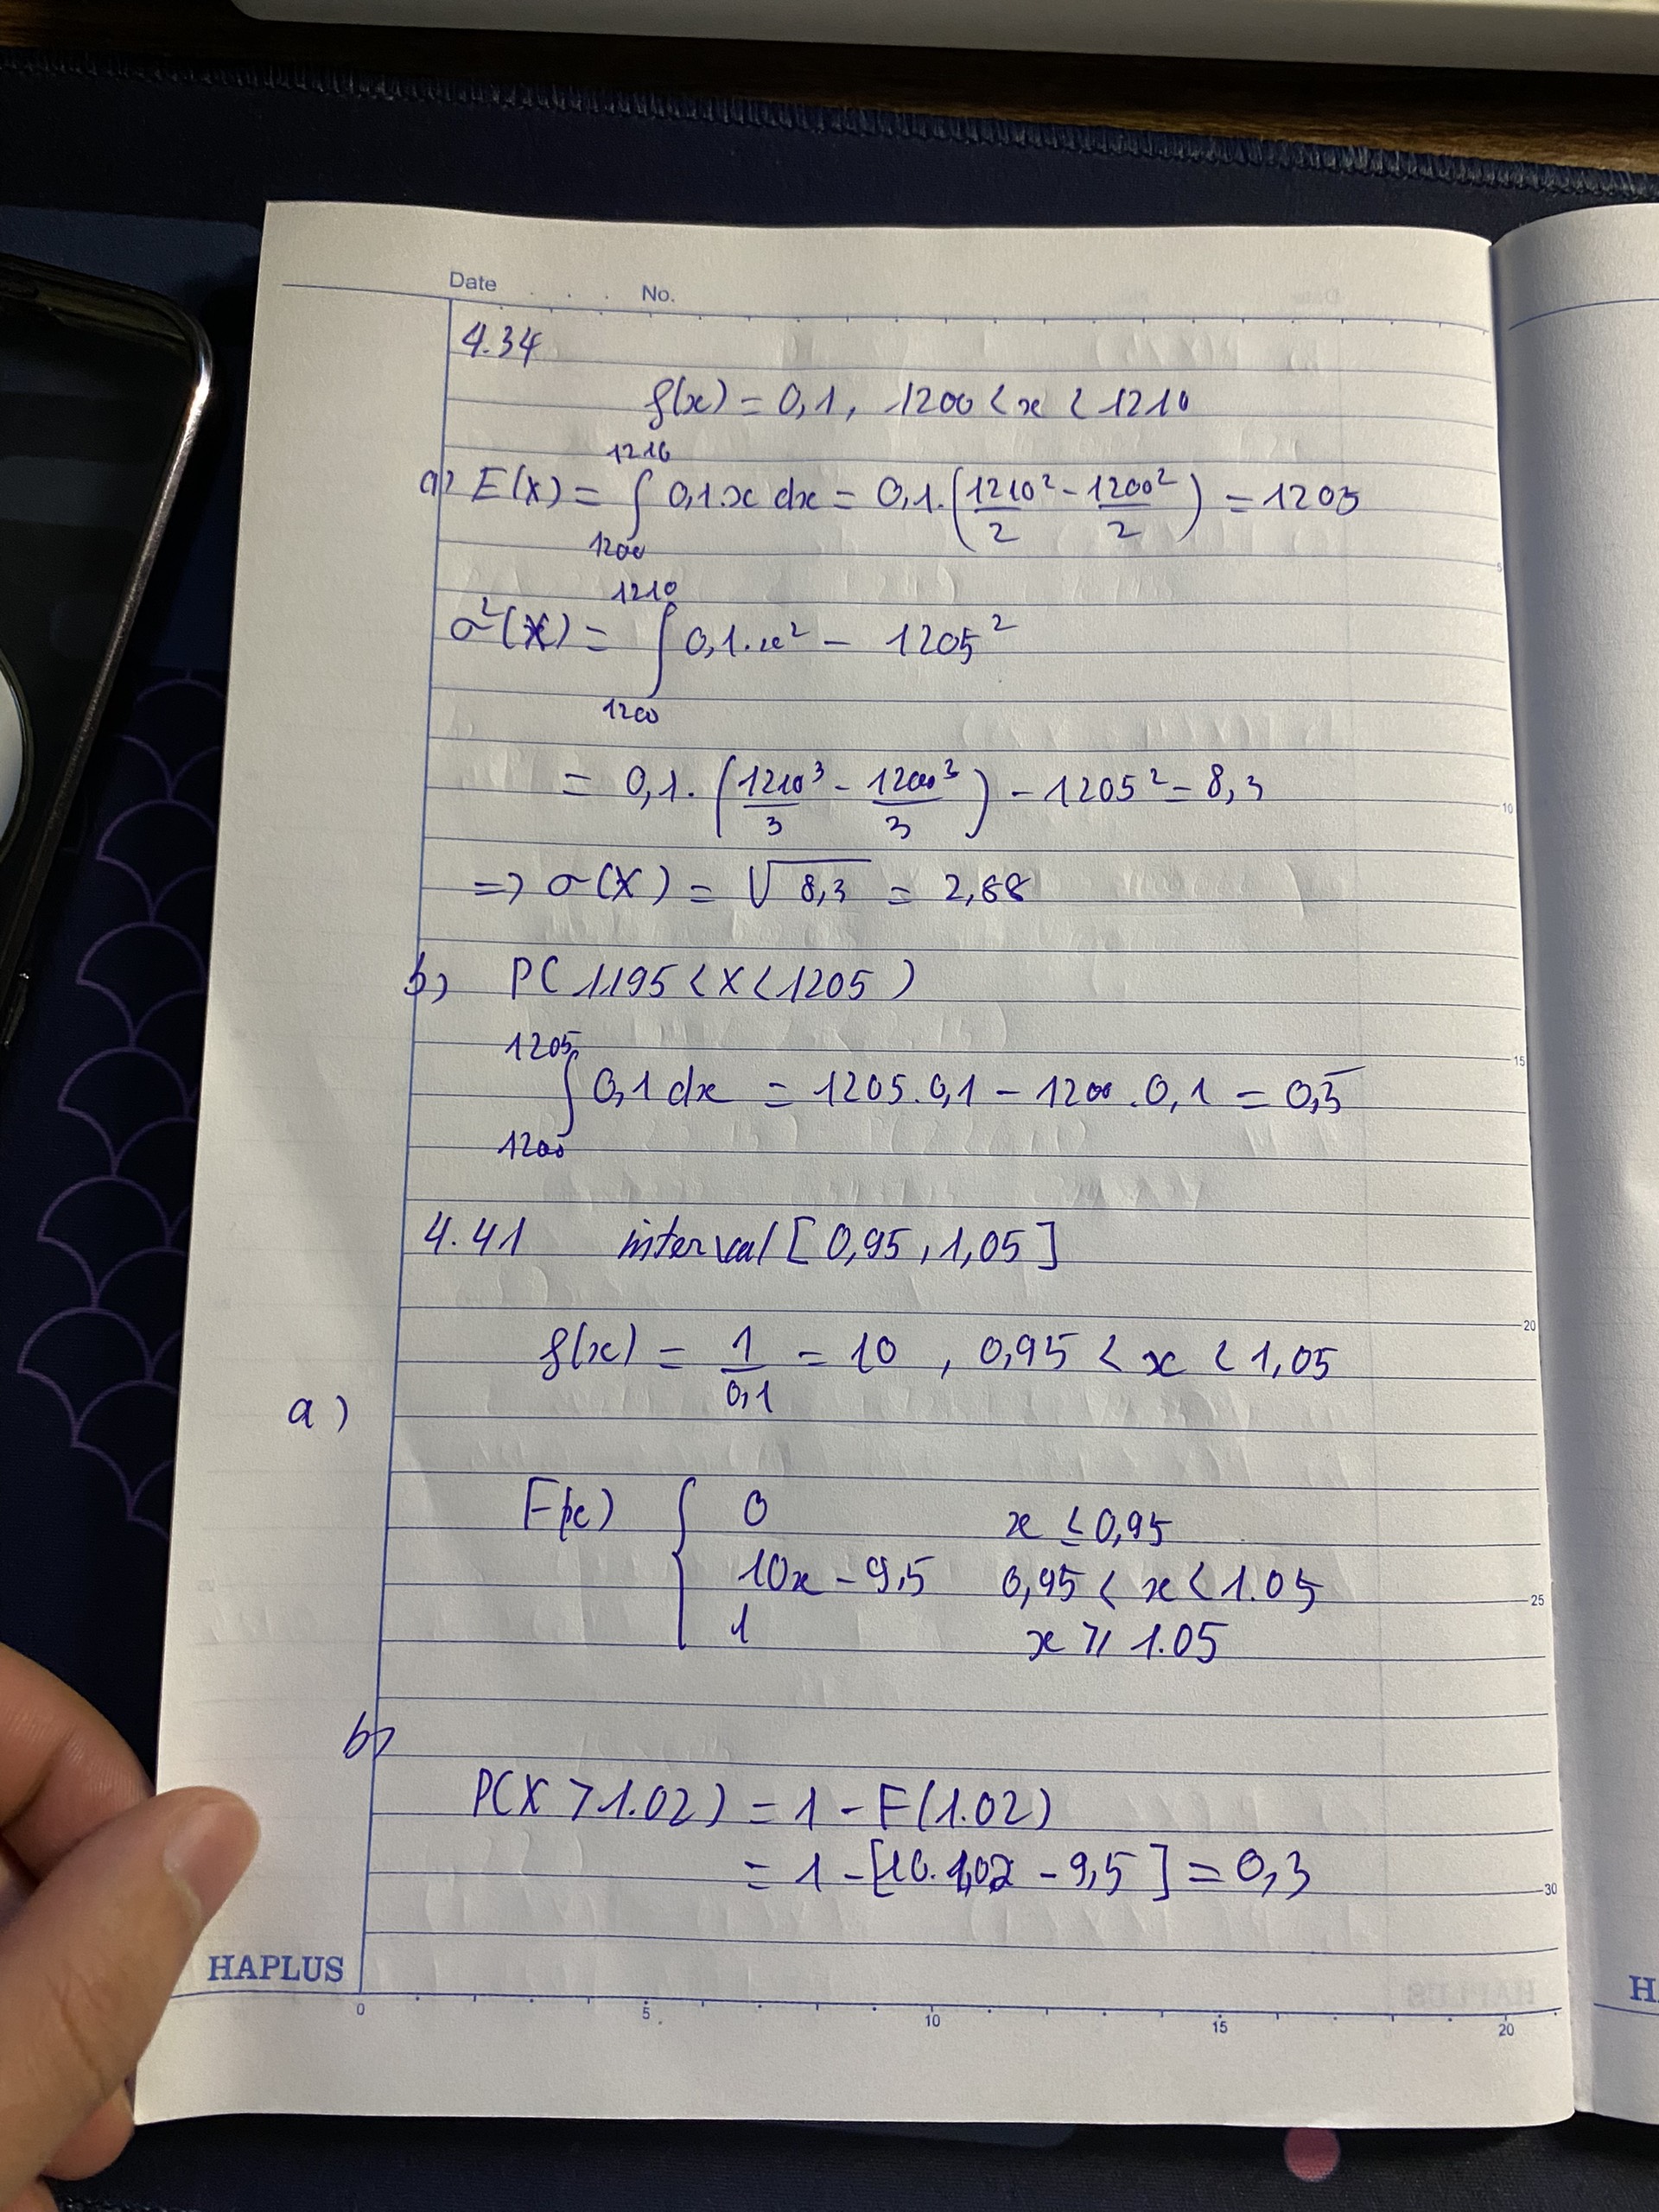 Date . . . . No.
4.34
f(x) = 0,1 , 1200 < x < 1210
a) E(X) = ∫_{1200}^{1210} 0,1.x dx = 0,1.(1210²/2 - 1200²/2) = 1205
σ²(X) = ∫_{1200}^{1210} 0,1.x² - 1205²
= 0,1.(1210³/3 - 1200³/3) - 1205² = 8,3
=> σ(X) = √8,3 = 2,88
b) P(1195 < X < 1205)
∫_{1200}^{1205} 0,1 dx = 1205.0,1 - 1200.0,1 = 0,5
4.41 interval [0,95 , 1,05]
f(x) = 1/0,1 = 10 , 0,95 < x < 1,05
a)
F(x) { 0 x ≤ 0,95
10x - 9,5 0,95 < x < 1.05
1 x ≥ 1.05
b)
P(X > 1.02) = 1 - F(1.02)
= 1 - [10.1,02 - 9,5] = 0,3
HAPLUS
0 5 10 15 20
5
10
15
20
25
30
H